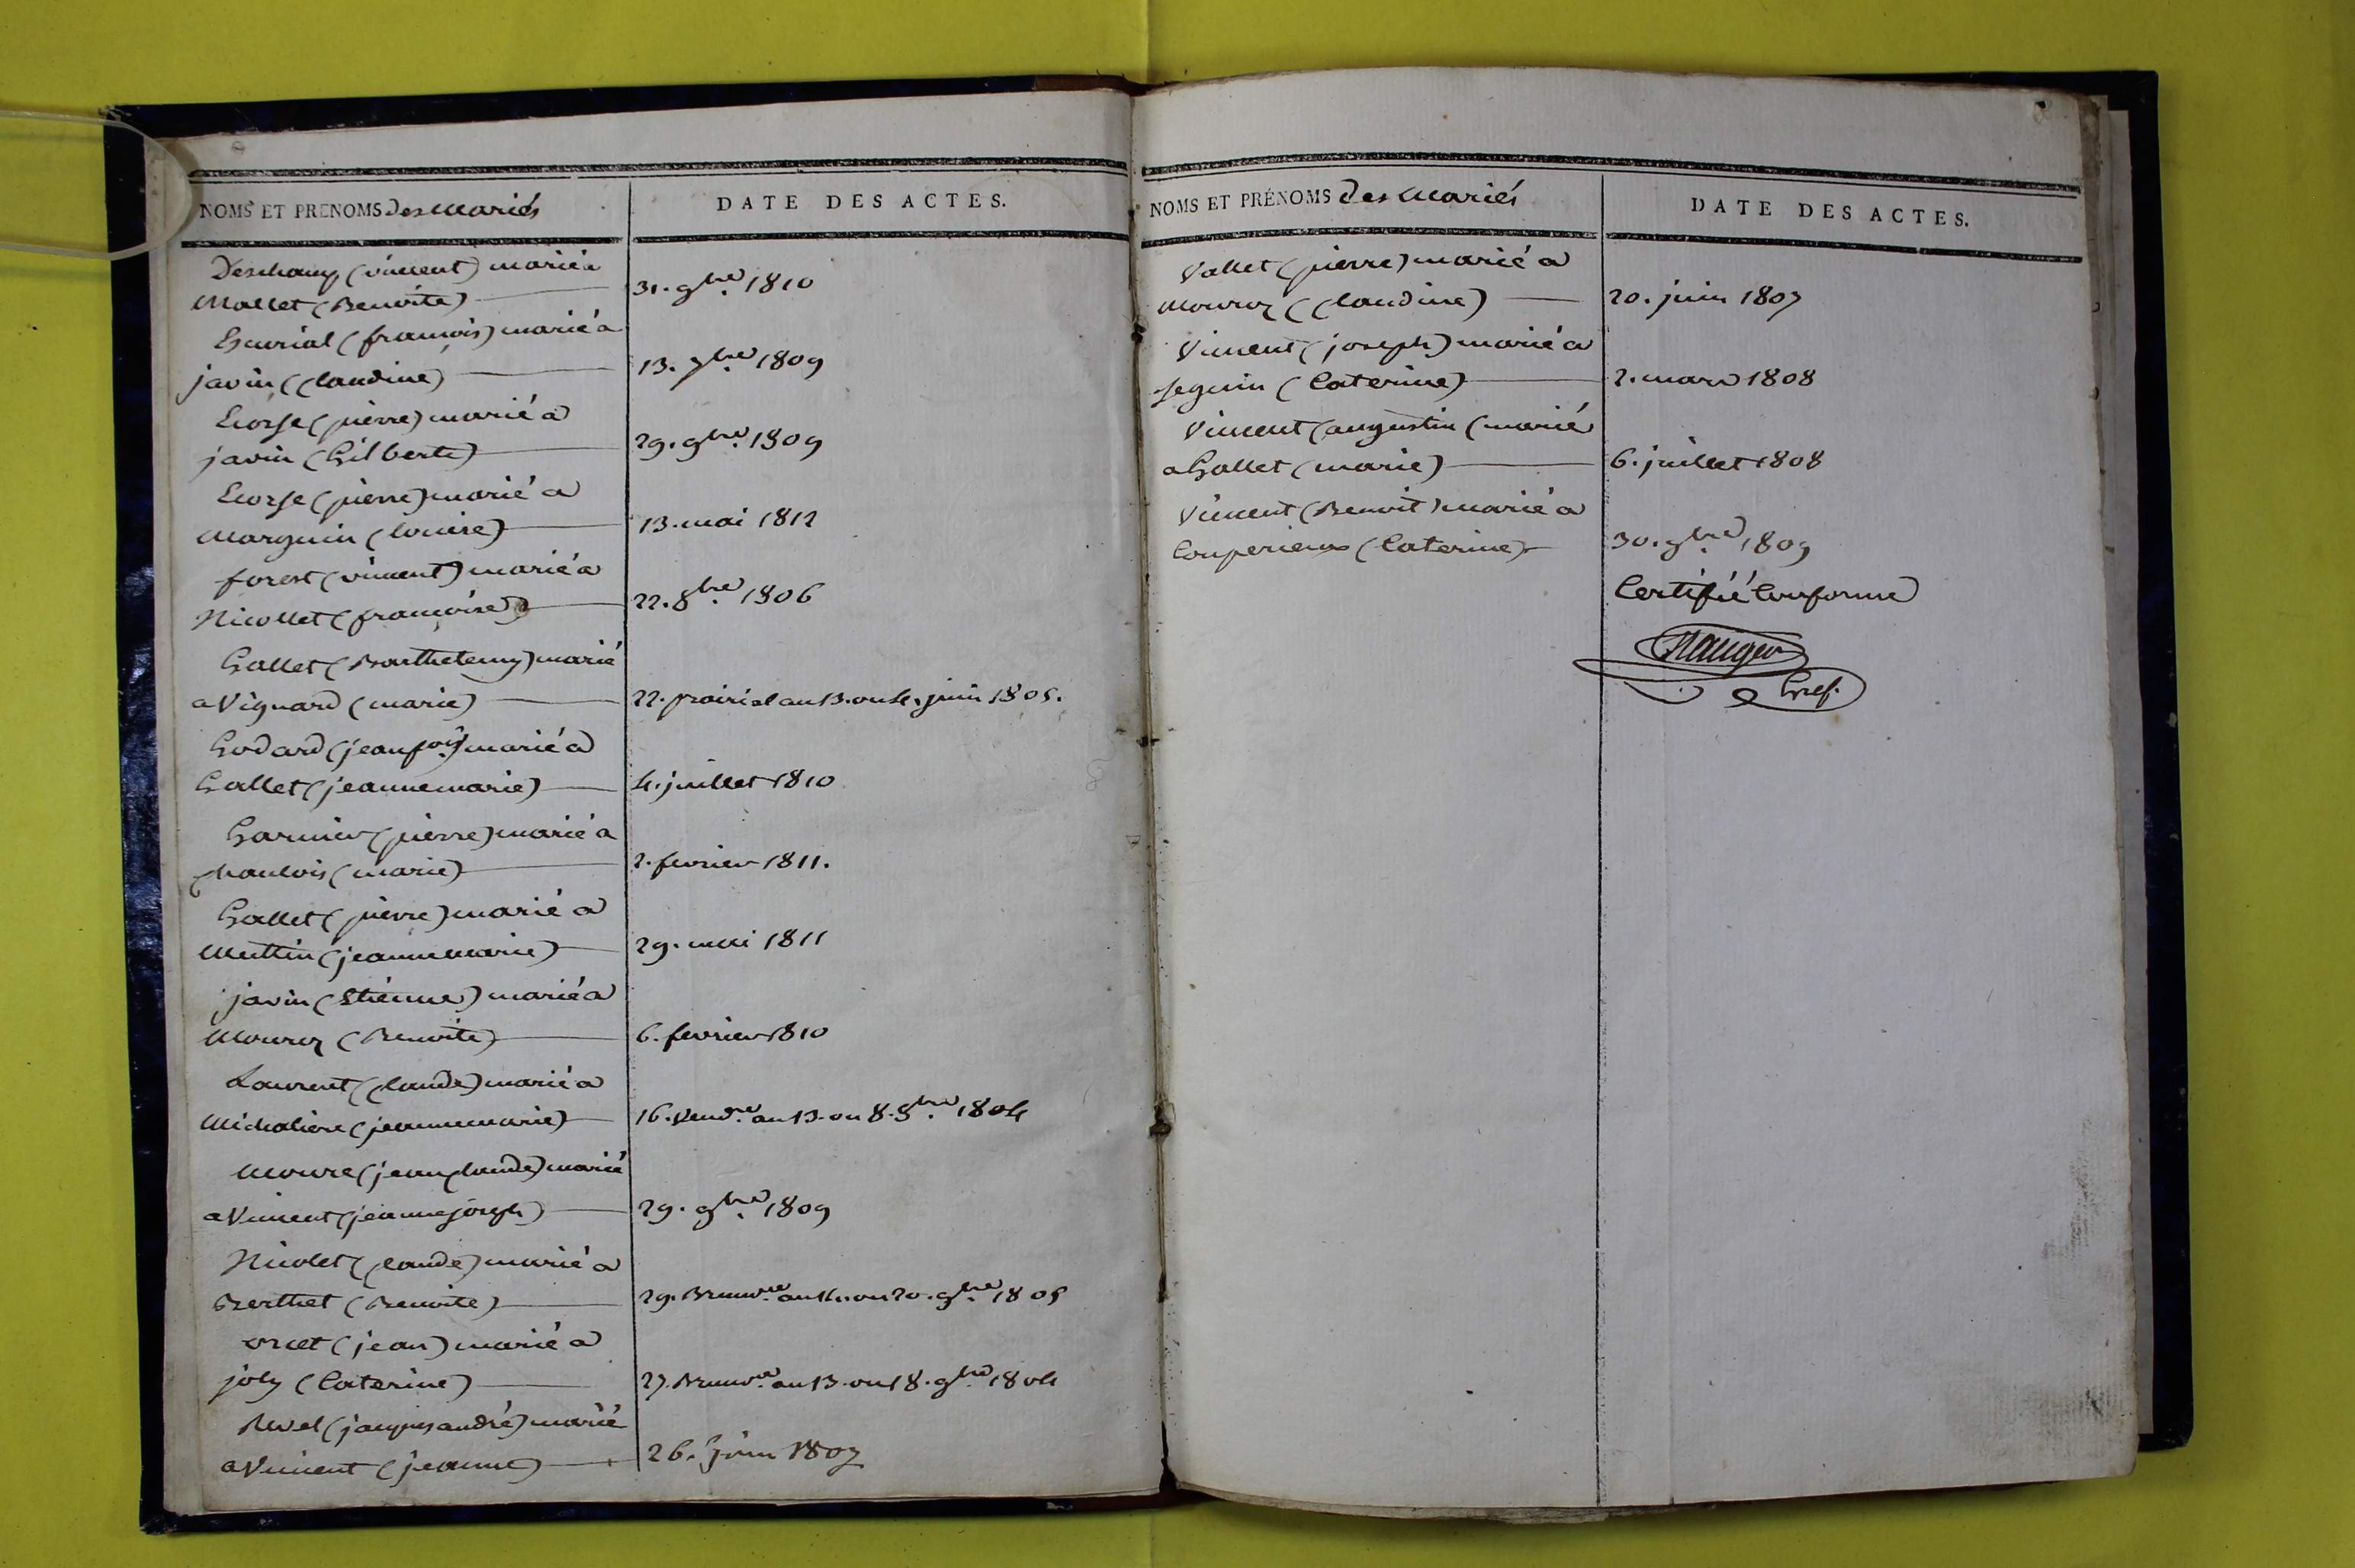 NOMS ET PRENOMS des mariés
DATE DES ACTES.
Deschamp (vincent) marié a
Mallet (Benoite)
31. 9bre. 1810
Escurial (francois) marié a
javin (Claudine)
13. 7bre. 1809
Escorse (pierre) marié a
javin (Gilberte)
29. 9bre. 1809
Escorse (pierre) marié a
Marguin (louise)
13. mai 1812
forest (vincent) marié a
Nicollet (francoise)
22. 8bre. 1806
Gallet (Barthelemy) marié
a Vignard (marie)
22. prairial an 13. ou 4. juin 1805.
Godard (jean fois) marié a
Gallet (jeanne marie)
4. juillet 1810
Garnier (pierre) marié a
(marie)
2. fevrier 1811.
Gallet (pierre) marié a
Muttin (jeanne marie)
29. mai 1811
javin (Etienne) marié a
Mouroz (Benoite)
6. fevrier 1810
Laurent (Claude) marié a
Michaliere (jeanne marie)
16. Vendre. an 13. ou 8. 8bre. 1804
Moure (jean Claude) marié
a Vincent (jeanne joseph)
29. 9bre. 1809
Nicolet (Claude) marié a
Berthet (Benoite)
29. Brumre. an 14. ou 20. 9bre. 1805
orcet (jean) marié a
joly (Caterine)
27. Brumre. an 13. ou 18. 9bre 1804
Revel (jacques andré) marié
a Vincent (jeanne)
26. juin 1807
NOMS ET PRÉNOMS des mariés
DATE DES ACTES.
Vallet (pierre) marié a
Mouroz (Claudine)
20. juin 1807
Vincent (joseph) marié a
seguin (Caterine)
2. mars 1808
Vincent (augustin (marié
a Gallet (marie)
6. juillet 1808
Vincent (Benoit) marié a
Couperieux (Caterine)
30. 9bre. 1809
Certifié Conforme
Gref.